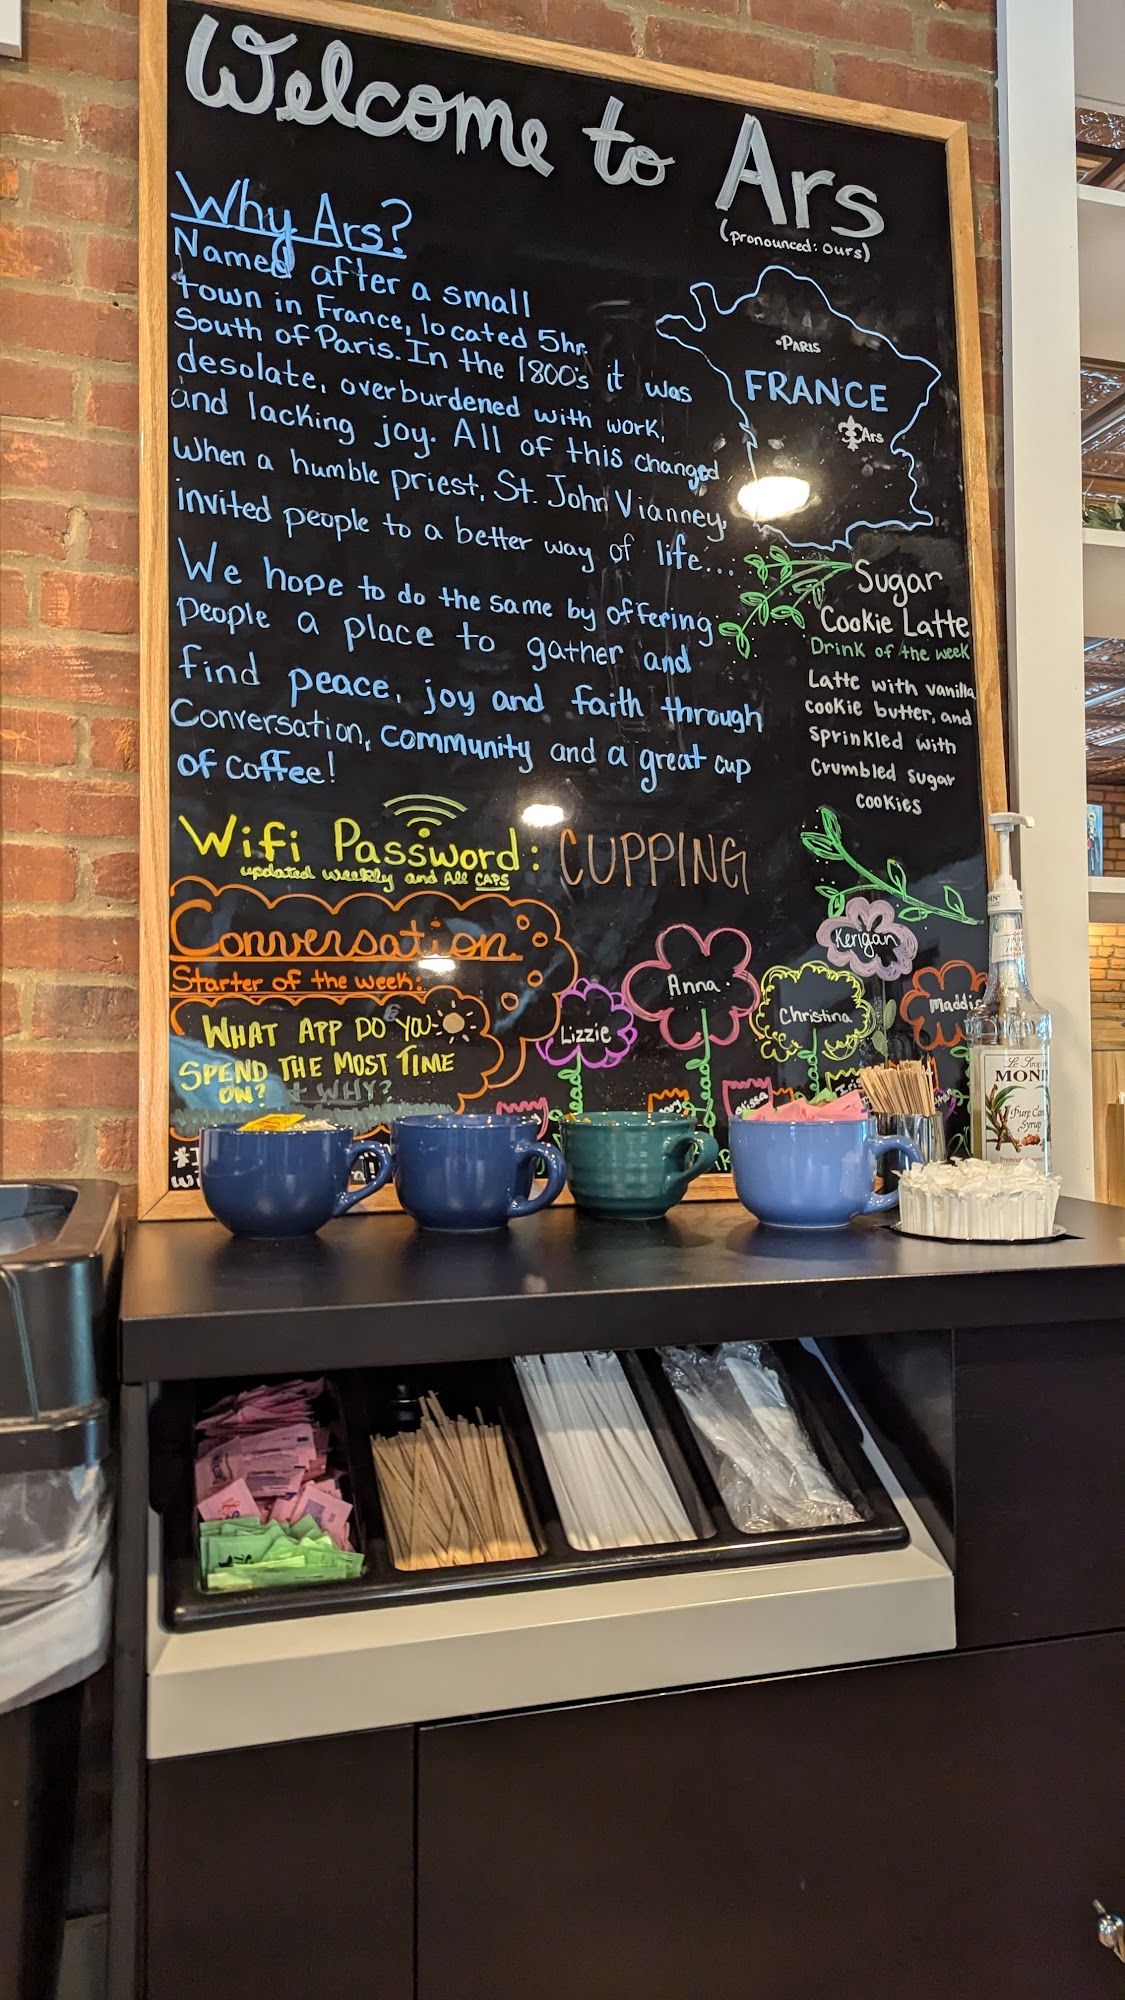 Welcome to Ars
(pronounced: ours)
Why Ars?
Named after a small
town in France, located 5hr.
South of Paris. In the 1800's it was
desolate, overburdened with work,
and lacking joy. All of this changed
when a humble priest, St. John Vianney,
invited people to a better way of life...
We hope to do the same by offering
people a place to gather and
find peace, joy and faith through
Conversation, community and a great cup
of coffee!
•PARIS
FRANCE
Ars
Sugar
Cookie Latte
Drink of the week
Latte with vanilla
cookie butter, and
sprinkled with
crumbled sugar
cookies
Wifi Password: CUPPING
updated weekly and All CAPS
Conversation
Starter of the week:
WHAT APP DO YOU
SPEND THE MOST TIME
ON? + WHY?
Lizzie
Anna
Christina
Kerigan
Maddis
MONIN
Pure Cane
Syrup